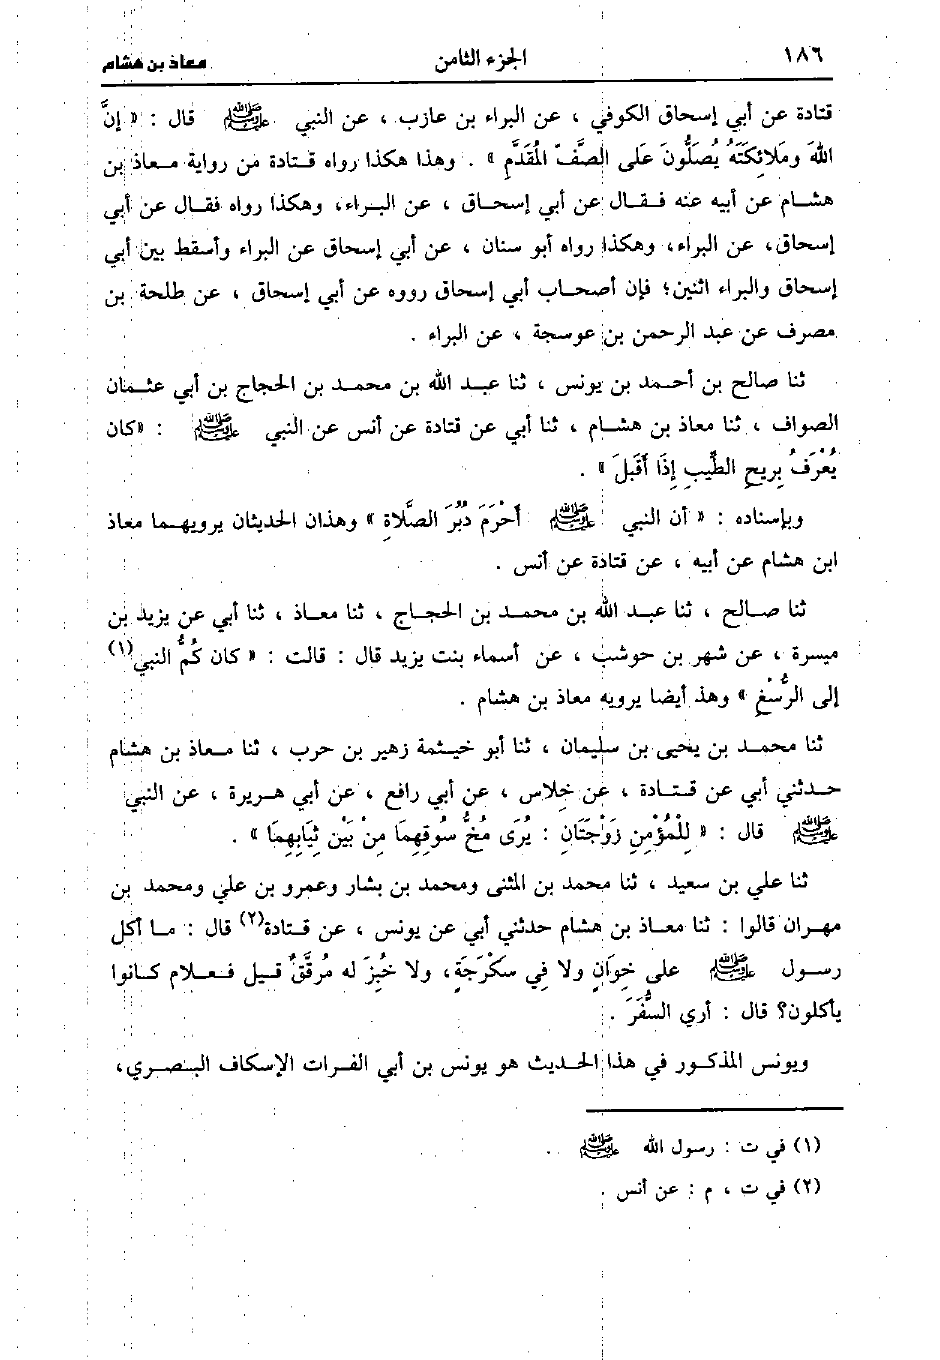 ١٨٦ الجزء الثامن معاذ بن هشام
قتادة عن أبي إسحاق الكوفي ، عن البراء بن عازب ، عن النبي ﷺ قال : « إنَّ
اللهَ ومَلائِكتَهُ يُصَلُّونَ عَلى الصَّفّ المُقَدَّمِ » . وهذا هكذا رواه قتادة من رواية معاذ بن
هشام عن أبيه عنه فقال عن أبي إسحاق ، عن البراء، وهكذا رواه فقال عن أبي
إسحاق، عن البراء، وهكذا رواه أبو سنان ، عن أبي إسحاق عن البراء وأسقط بين أبي
إسحاق والبراء اثنين؛ فإن أصحاب أبي إسحاق رووه عن أبي إسحاق ، عن طلحة بن
مصرف عن عبد الرحمن بن عوسجة ، عن البراء .
ثنا صالح بن أحمد بن يونس ، ثنا عبد الله بن محمد بن الحجاج بن أبي عثمان
الصواف ، ثنا معاذ بن هشام ، ثنا أبي عن قتادة عن أنس عن النبي ﷺ : «كان
يُعْرَفُ بِريحِ الطِّيبِ إِذَا أَقبَلَ » .
وبإسناده : « أن النبي ﷺ أحْرَمَ دُبُرَ الصَّلاةِ » وهذان الحديثان يرويهما معاذ
ابن هشام عن أبيه ، عن قتادة عن أنس .
ثنا صالح ، ثنا عبد الله بن محمد بن الحجاج ، ثنا معاذ ، ثنا أبي عن يزيد بن
ميسرة ، عن شهر بن حوشب ، عن أسماء بنت يزيد قال : قالت : « كان كُمُّ النبي(١)
إلى الرُّسْغِ » وهذ أيضا يرويه معاذ بن هشام .
ثنا محمد بن يحيى بن سليمان ، ثنا أبو خيثمة زهير بن حرب ، ثنا معاذ بن هشام
حدثني أبي عن قتادة ، عن خِلاس ، عن أبي رافع ، عن أبي هريرة ، عن النبي
ﷺ قال : « لِلْمُؤْمِنِ زَوْجَتَانِ : يُرَى مُخُّ سُوقِهِمَا مِنْ بَيْنِ ثِيَابِهِمَا » .
ثنا علي بن سعيد ، ثنا محمد بن المثنى ومحمد بن بشار وعمرو بن علي ومحمد بن
مهران قالوا : ثنا معاذ بن هشام حدثني أبي عن يونس ، عن قتادة(٢) قال : ما أكل
رسول ﷺ على خِوَانٍ ولا فِي سكْرَجَةٍ، ولا خُبِزَ له مُرقَّقٌ قيل فعلام كانوا
يأكلون؟ قال : أري السُّفَرَ .
ويونس المذكور في هذا الحديث هو يونس بن أبي الفرات الإسكاف البصري،
(١) في ت : رسول الله ﷺ .
(٢) في ت ، م : عن أنس .